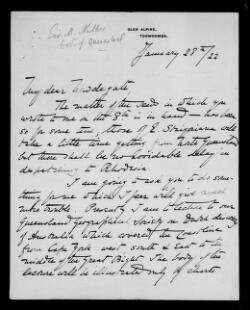 Sir M. Nathan
Govt of Queensland
GLEN ALPINE,
TOOWOOMBA.
January 28th/22
My dear
The matter of the seeds in which you
wrote to me on the 8th is in hand – has been
so for some time. Those of E. will
take a little time getting from North Queensland
but there shall be no avoidable delay in
despatching to Rhodesia.
I am going to ask you to do some-
thing for me which I fear will give
more trouble. Presently I am to lecture to our
Queensland Geographical Society on Dutch discovery
of Australia which covered the Coastline
from Cape York west south & East to the
middle of the Great Bight. The body of the
lecture will be illustrated only by charts